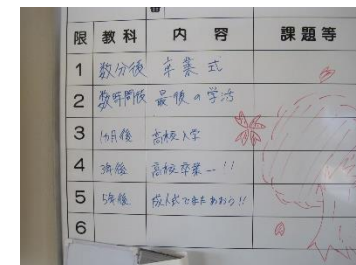 限 教科 内容 課題等
1 数分後 卒業式
2 数時間後 最後の学活
3 1ヵ月後 高校入学
4 3年後 高校卒業…!!
5 5年後 成人式でまたあおう!!
6